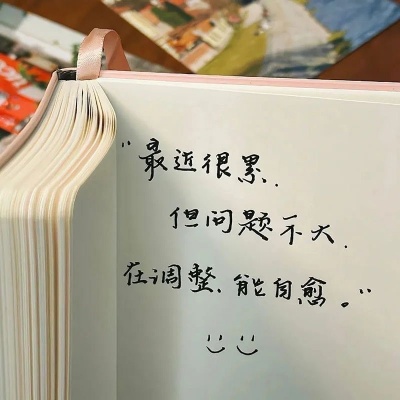 “最近很累.
但问题不大.
在调整、能自愈。”